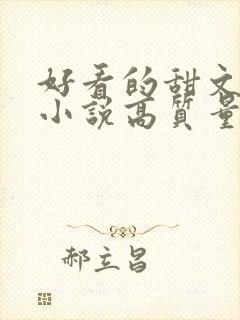 好看的甜文
小说高质量
郝立昌